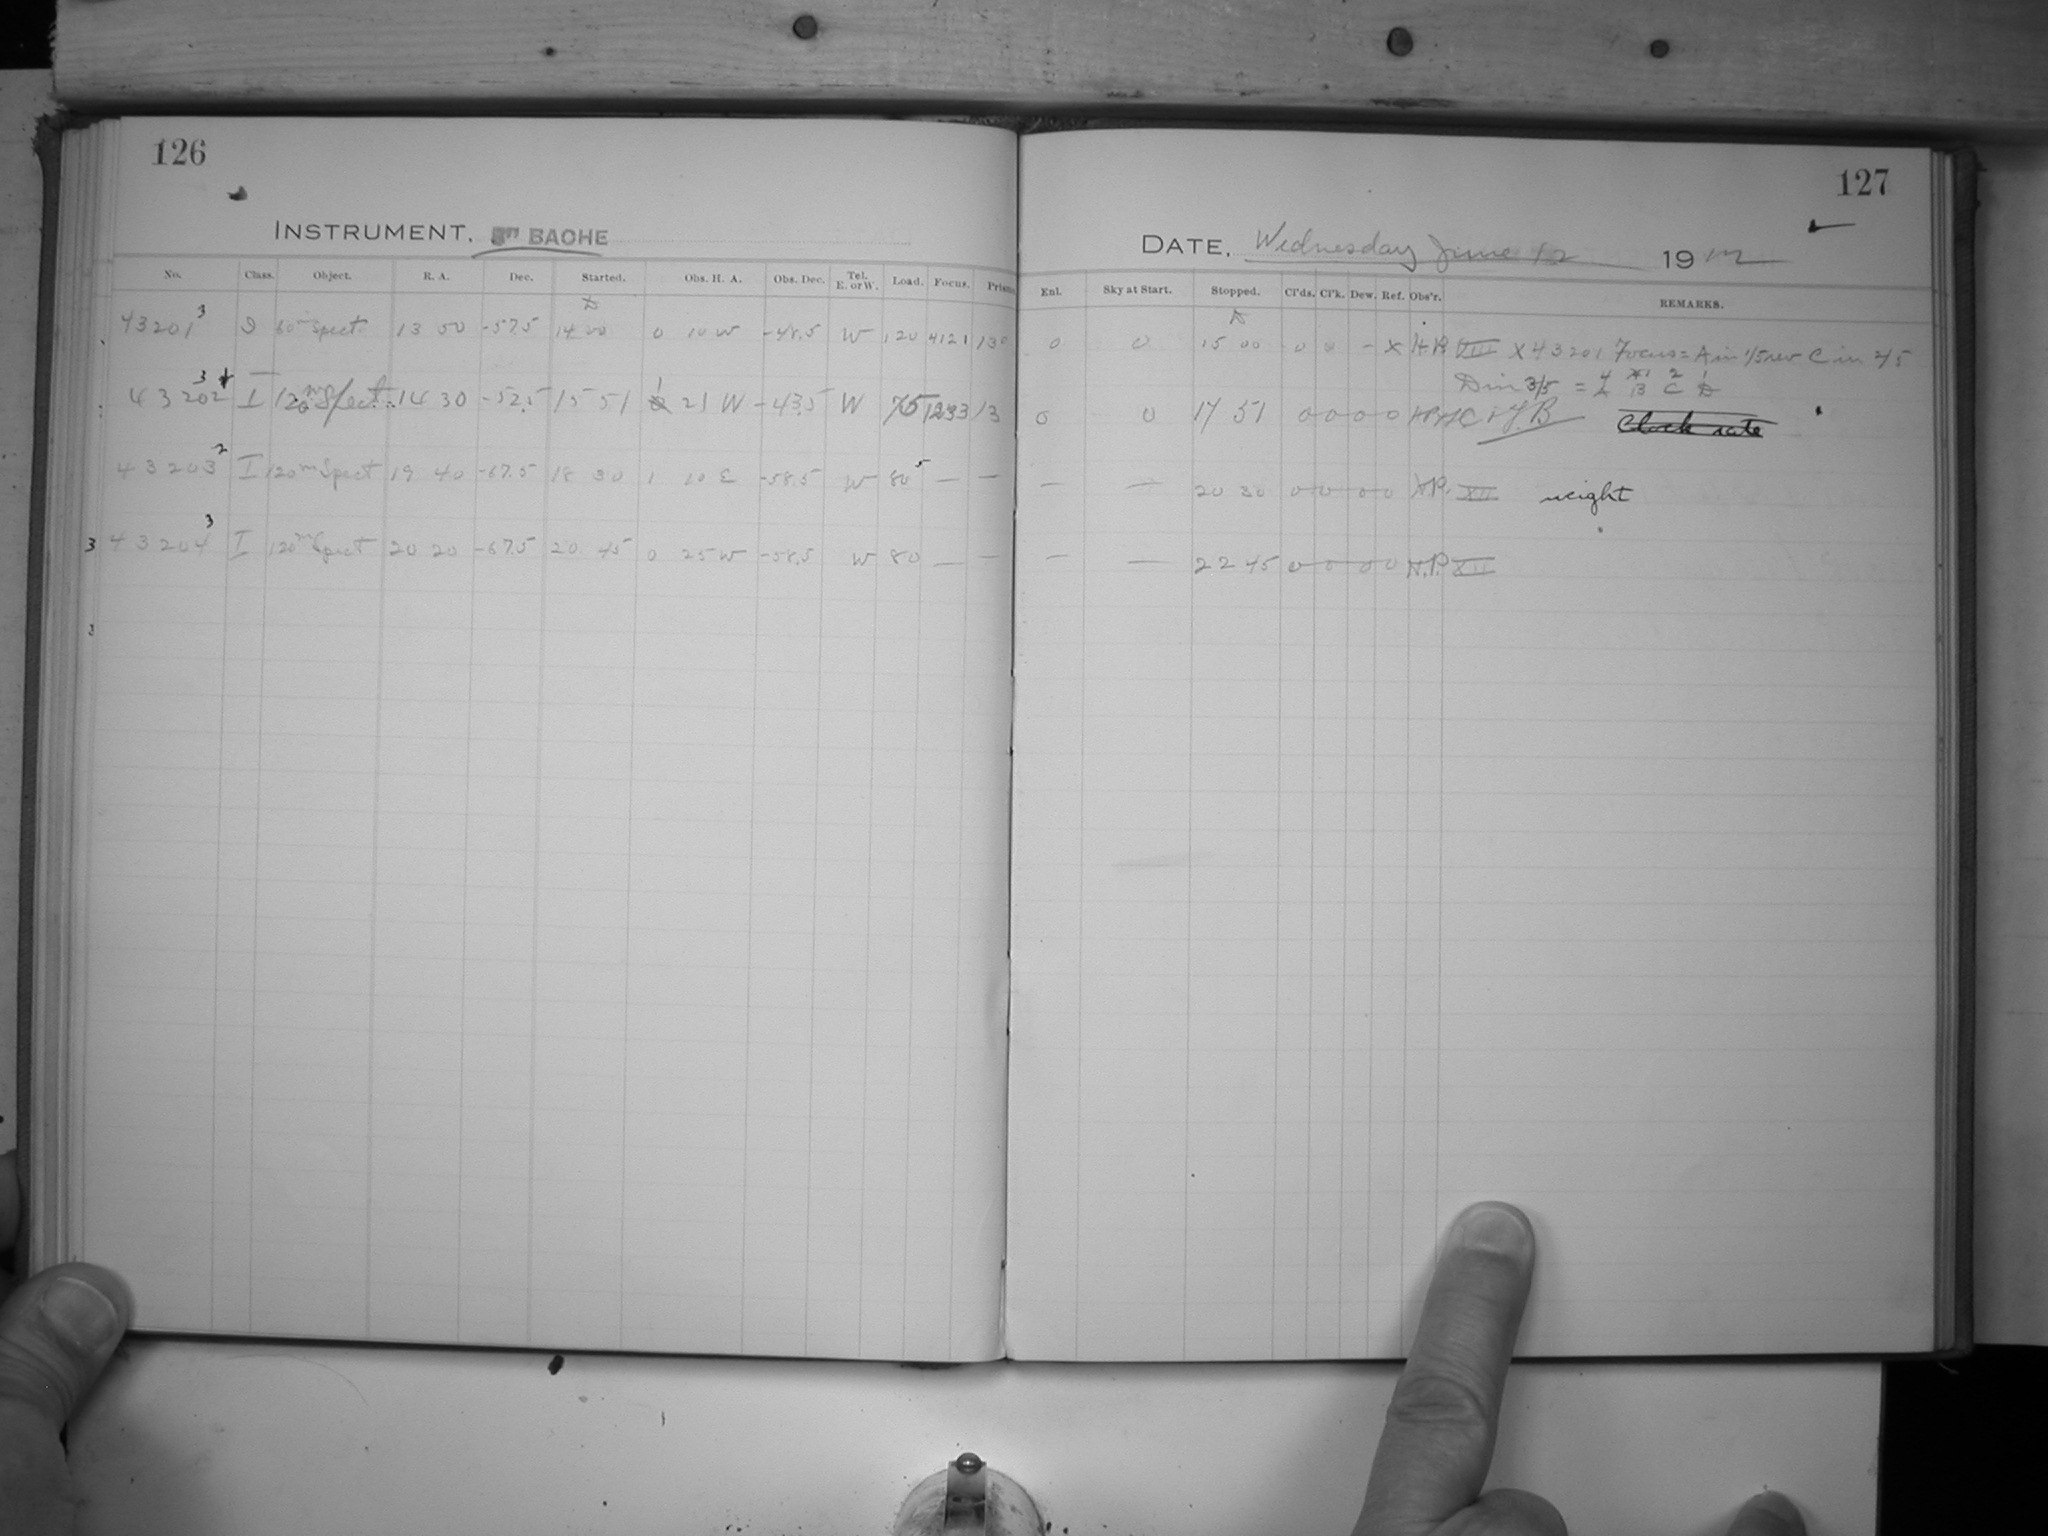 126
INSTRUMENT. 8" BACHE
No. Class. Object. R. A. Dec. Started. Obs. H. A. Obs. Dec. Tel. E. or W. Load. Focus. Prism
43201 3 60m Spect. 13 00 -57.5 14 00 0 10 W -48.5 W 120 4121 13
43202 3 I 120m Spect. 14 30 -52.5 15 51 1 21 W -43.5 W 75 13
43203 2 I 120m Spect 19 40 -67.5 18 30 1 10 E -58.5 W 80 — —
3 43204 3 I 120m Spect 20 20 -67.5 20 45 0 25 W -58.5 W 80 — —
3
127
DATE. Wednesday June 12 1912
Enl. Sky at Start. Stopped. Cl'ds. Cl'k. Dew. Ref. Obs'r. REMARKS.
0 0 15 00 0 0 - X H.P. VIII X43201 Focus = A in 1/5 rev C in 2/5
D in 3/5 = B C D
0 0 17 51 0 0 0 0 Clock rate
— — 20 30 0 0 0 0 H.P. XII weight
— — 22 45 0 0 0 0 H.P. XII